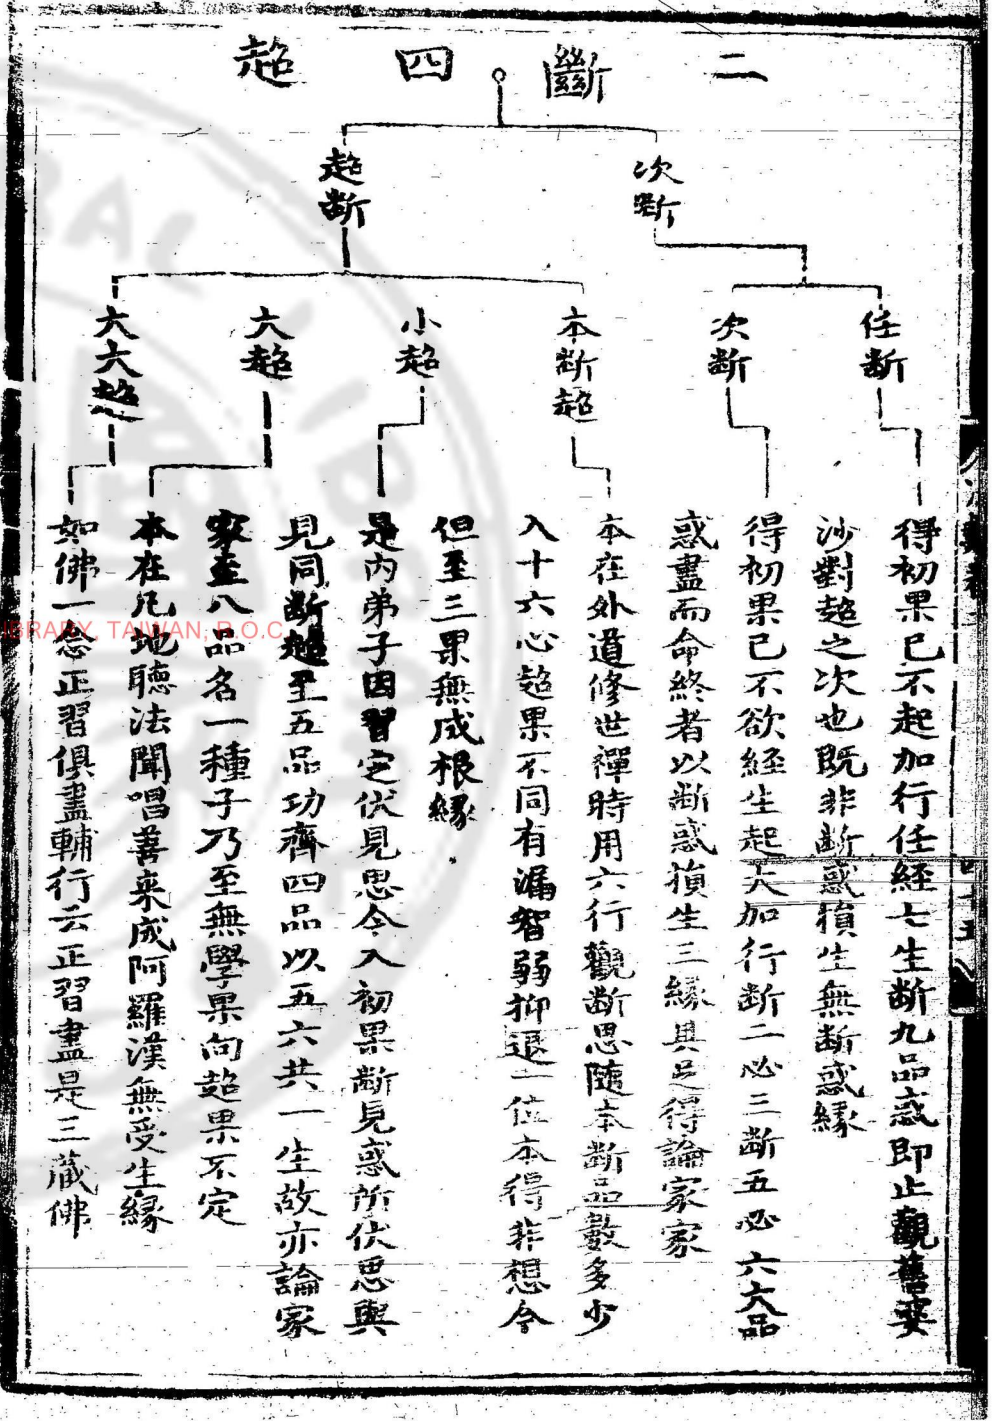 二斷四超
次斷
超斷
任斷
次斷
本斷超
小超
大超
大大超
得初果已不起加行任經七生斷九品惑即止觀舊婆
沙對超之次也既非斷惑損生無斷惑緣
得初果已不欲經生起大加行斷二必三斷五必六六品
惑盡而命終者以斷惑損生三緣具足得論家家
本在外道修世禪時用六行觀斷思隨本斷品數多少
入十六心超果不同有漏智弱抑退一位本得非想今
但至三果無成根緣
是內弟子因習定伏見思今入初果斷見惑所伏思與
見同斷超至五品功齊四品以五六共一生故亦論家
家至八品名一種子乃至無學果向超果不定
本在凡地聽法聞唱善來成阿羅漢無受生緣
如佛一念正習俱盡輔行云正習盡是三藏佛
四十五
IBRARY, TAIWAN, R.O.C.